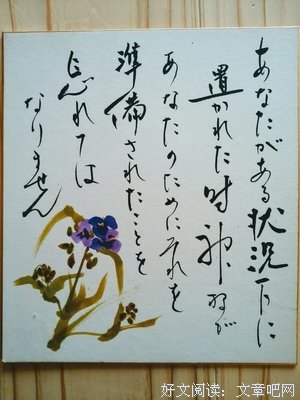 あなたがある状況下に
置かれた時神様が
あなたのためにそれを
準備されたことを
忘れては
なりません
好文阅读：文章吧网